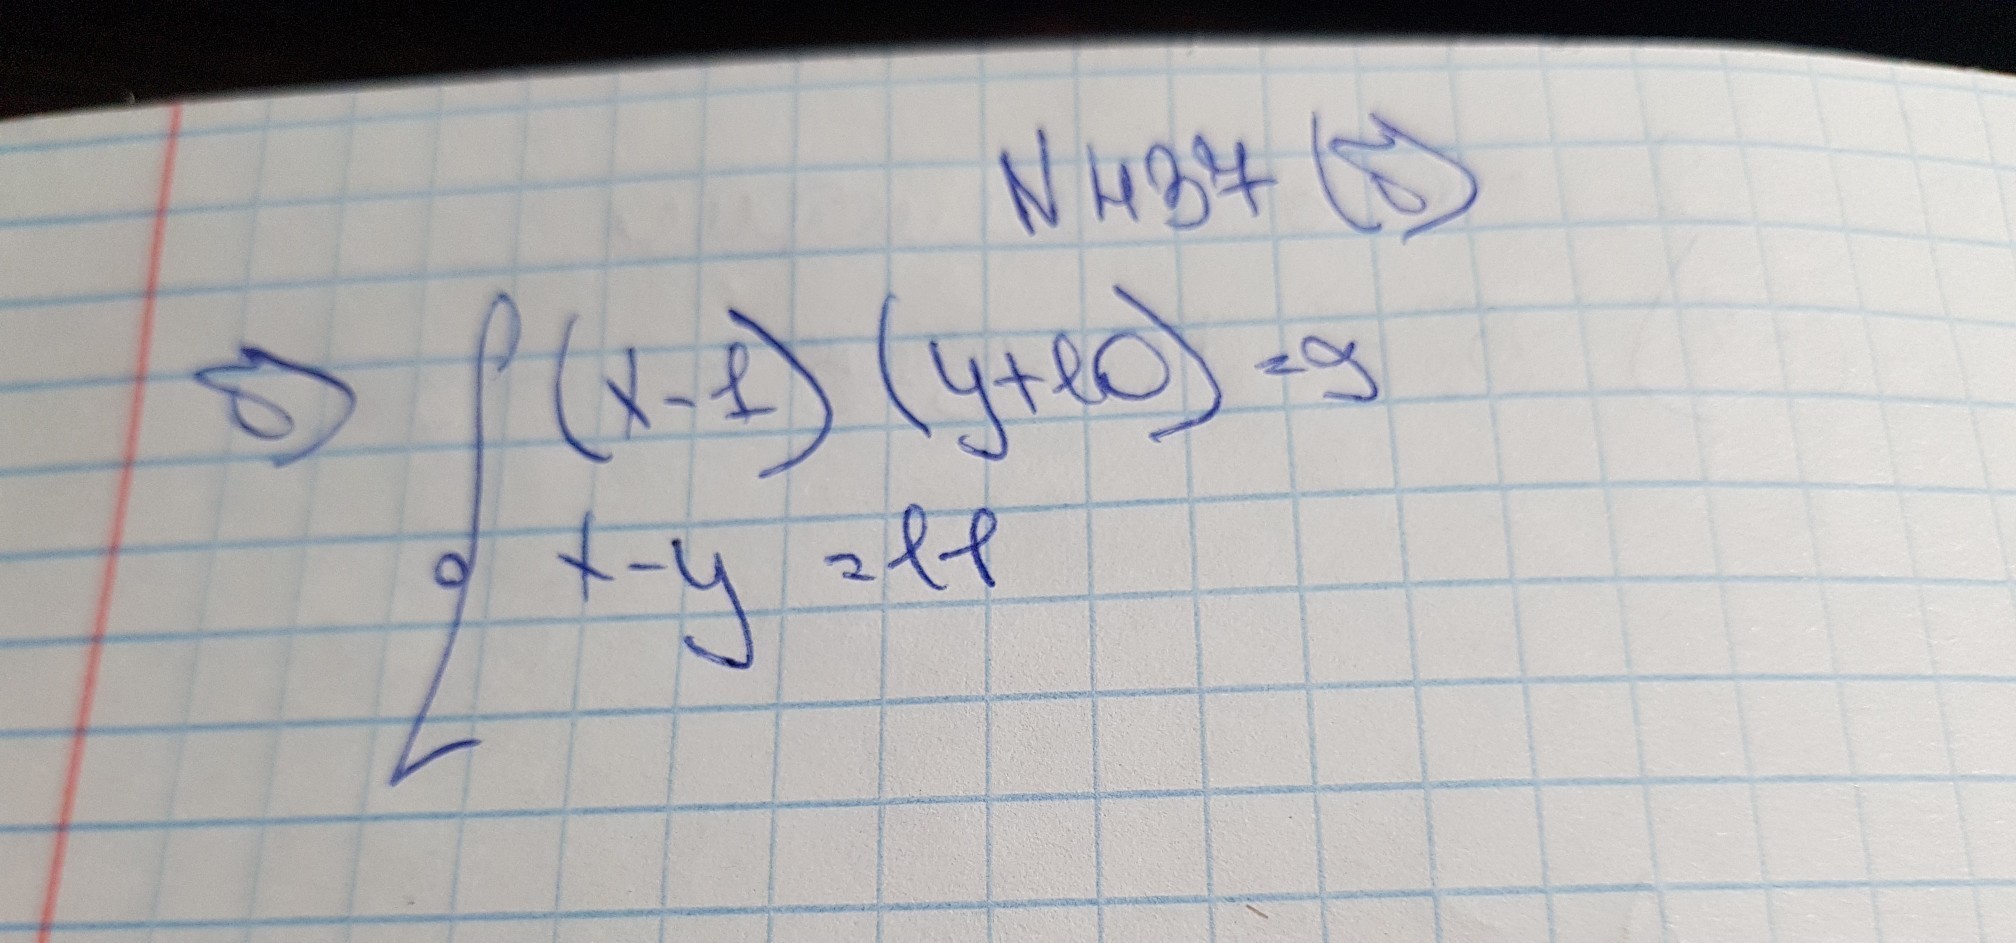 N 437 (б)
б) { (x-1) (y+10) = 9
x-y = 11